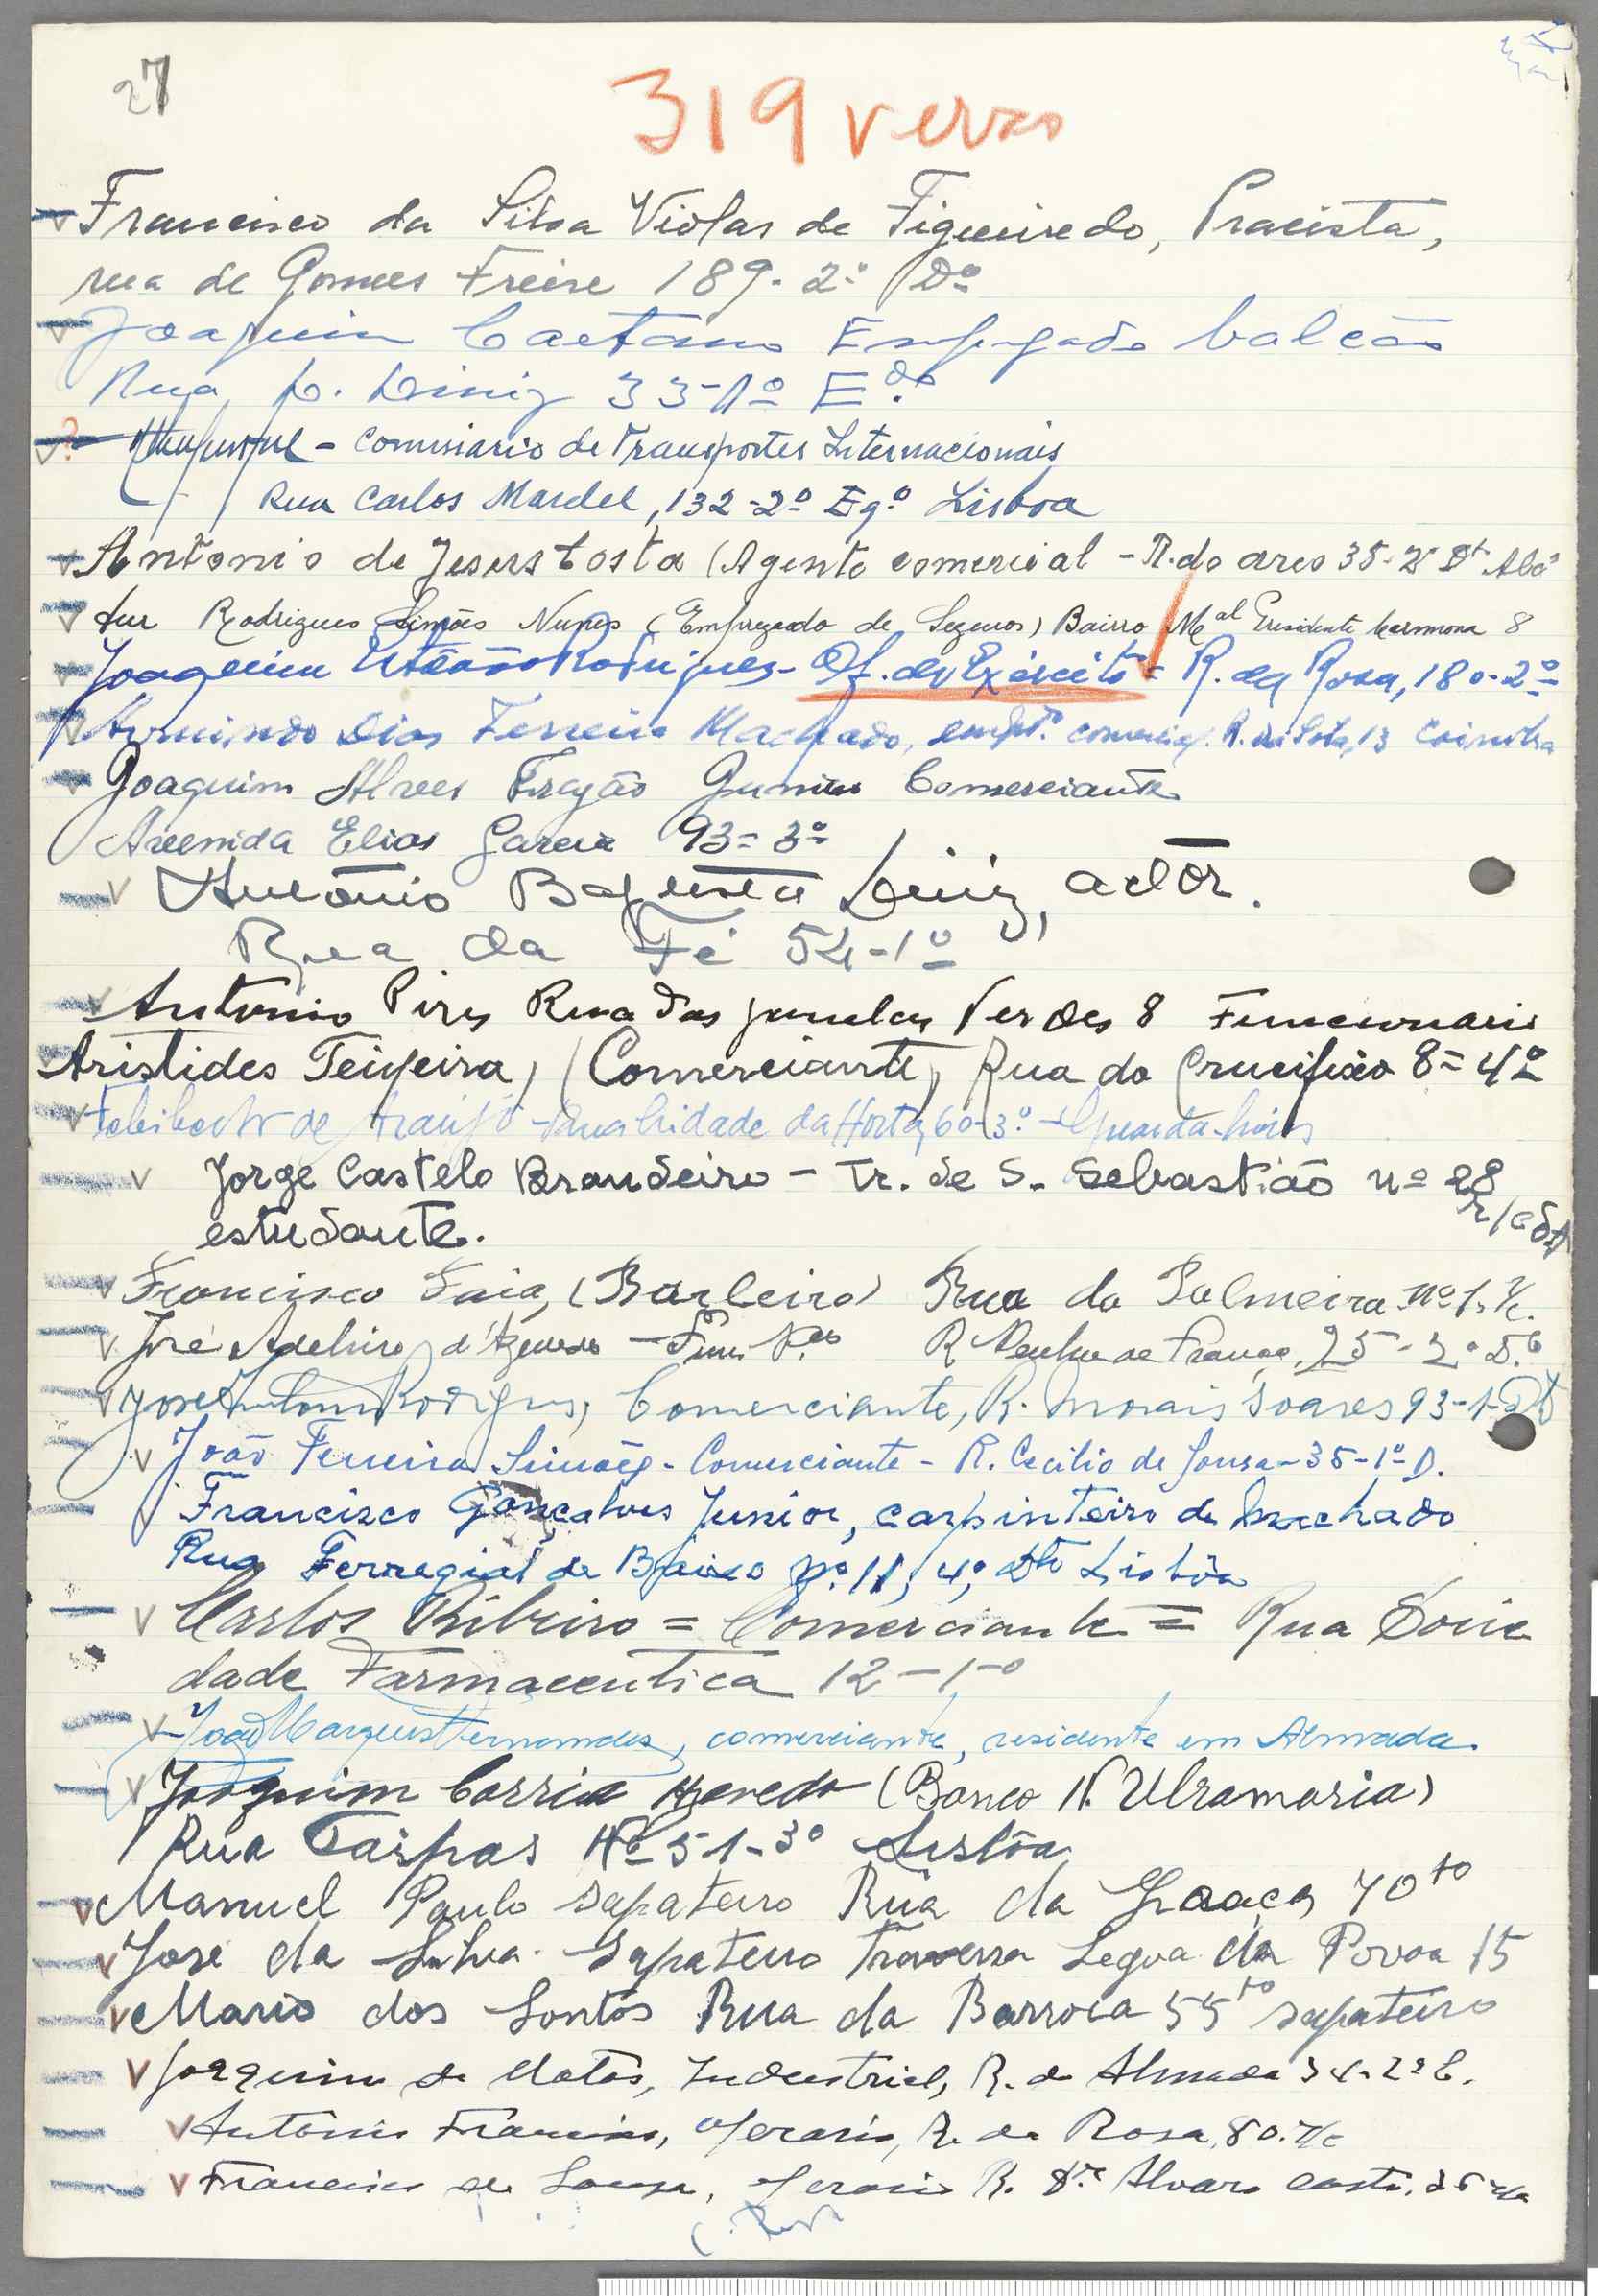 27
319 verso
Francisco da Silva Violas de Figueiredo, Pracista,
rua de Gomes Freire 189-2º Dº
Joaquim Caetano Empregado balcão
Rua D. Diniz 33-1º Edo.
- Comissario de Transportes Internacionais
Rua Carlos Mardel, 132-2º Eqº Lisboa
Antonio de Jesus Costa (Agente comercial - R. do arco 35-2º Dt
Rodrigues Simões Nunes (Empregado de Seguros) Bairro Mal Presidente Carmona 8
Joaquim Rodrigues - Of. do Exército - R. da Rosa, 180-2º
Armindo Dias Ferreira Machado, empº comercial. R. da Sota, 13 Coimbra
Joaquim Alves Frazão Junior Comerciante
Avenida Elias Garcia 93-3º
António Baptista Diniz, actor.
Rua da Fé 54-1º
Antonio Pires Rua das Janelas Verdes 8 Funcionario
Aristides Teixeira, (Comerciante) Rua do Crucifixo 8-4º
Feliberto de Araújo - da Horta, 60-3º - Guarda-livros
Jorge Castelo Brandeiro - Tr. de S. Sebastião nº 28
estudante. r/c
Francisco Faia, (Barbeiro) Rua da Palmeira nº 1. r/c.
José Adelino d'Azevedo - R Penha de França, 25-2º D.to
José António Rodrigues, Comerciante, R. Morais Soares 93-1-Dt
João Ferreira Simões - Comerciante - R. Cecilio de Sousa - 35-1º D.
Francisco Gonçalves Junior, carpinteiro de machado
Rua Ferregial de Baixo nº 11, 4º, Dto Lisbôa
Carlos Ribeiro = Comerciante = Rua Socie
dade Farmaceutica 12-1-º
João Marques Fernandes, comerciante, residente em Almada.
Joaquim Corria Azevedo (Banco N. Ulramaria)
Rua Taipas Nº 51-3º Lisbôa
Manuel Paulo sapateiro Rua da Graça 70to
José da Silva. Sapateiro Travessa Legoa da Povoa 15
Mario dos Santos Rua da Barroca 55to sapateiro
Joaquim de Matos, Industrial, R. de Almada 34-2º E.
António Francisco, operario, R. da Rosa, 80. r/c
Francisco de Sousa, operario R. Dr. Alvaro Castro.